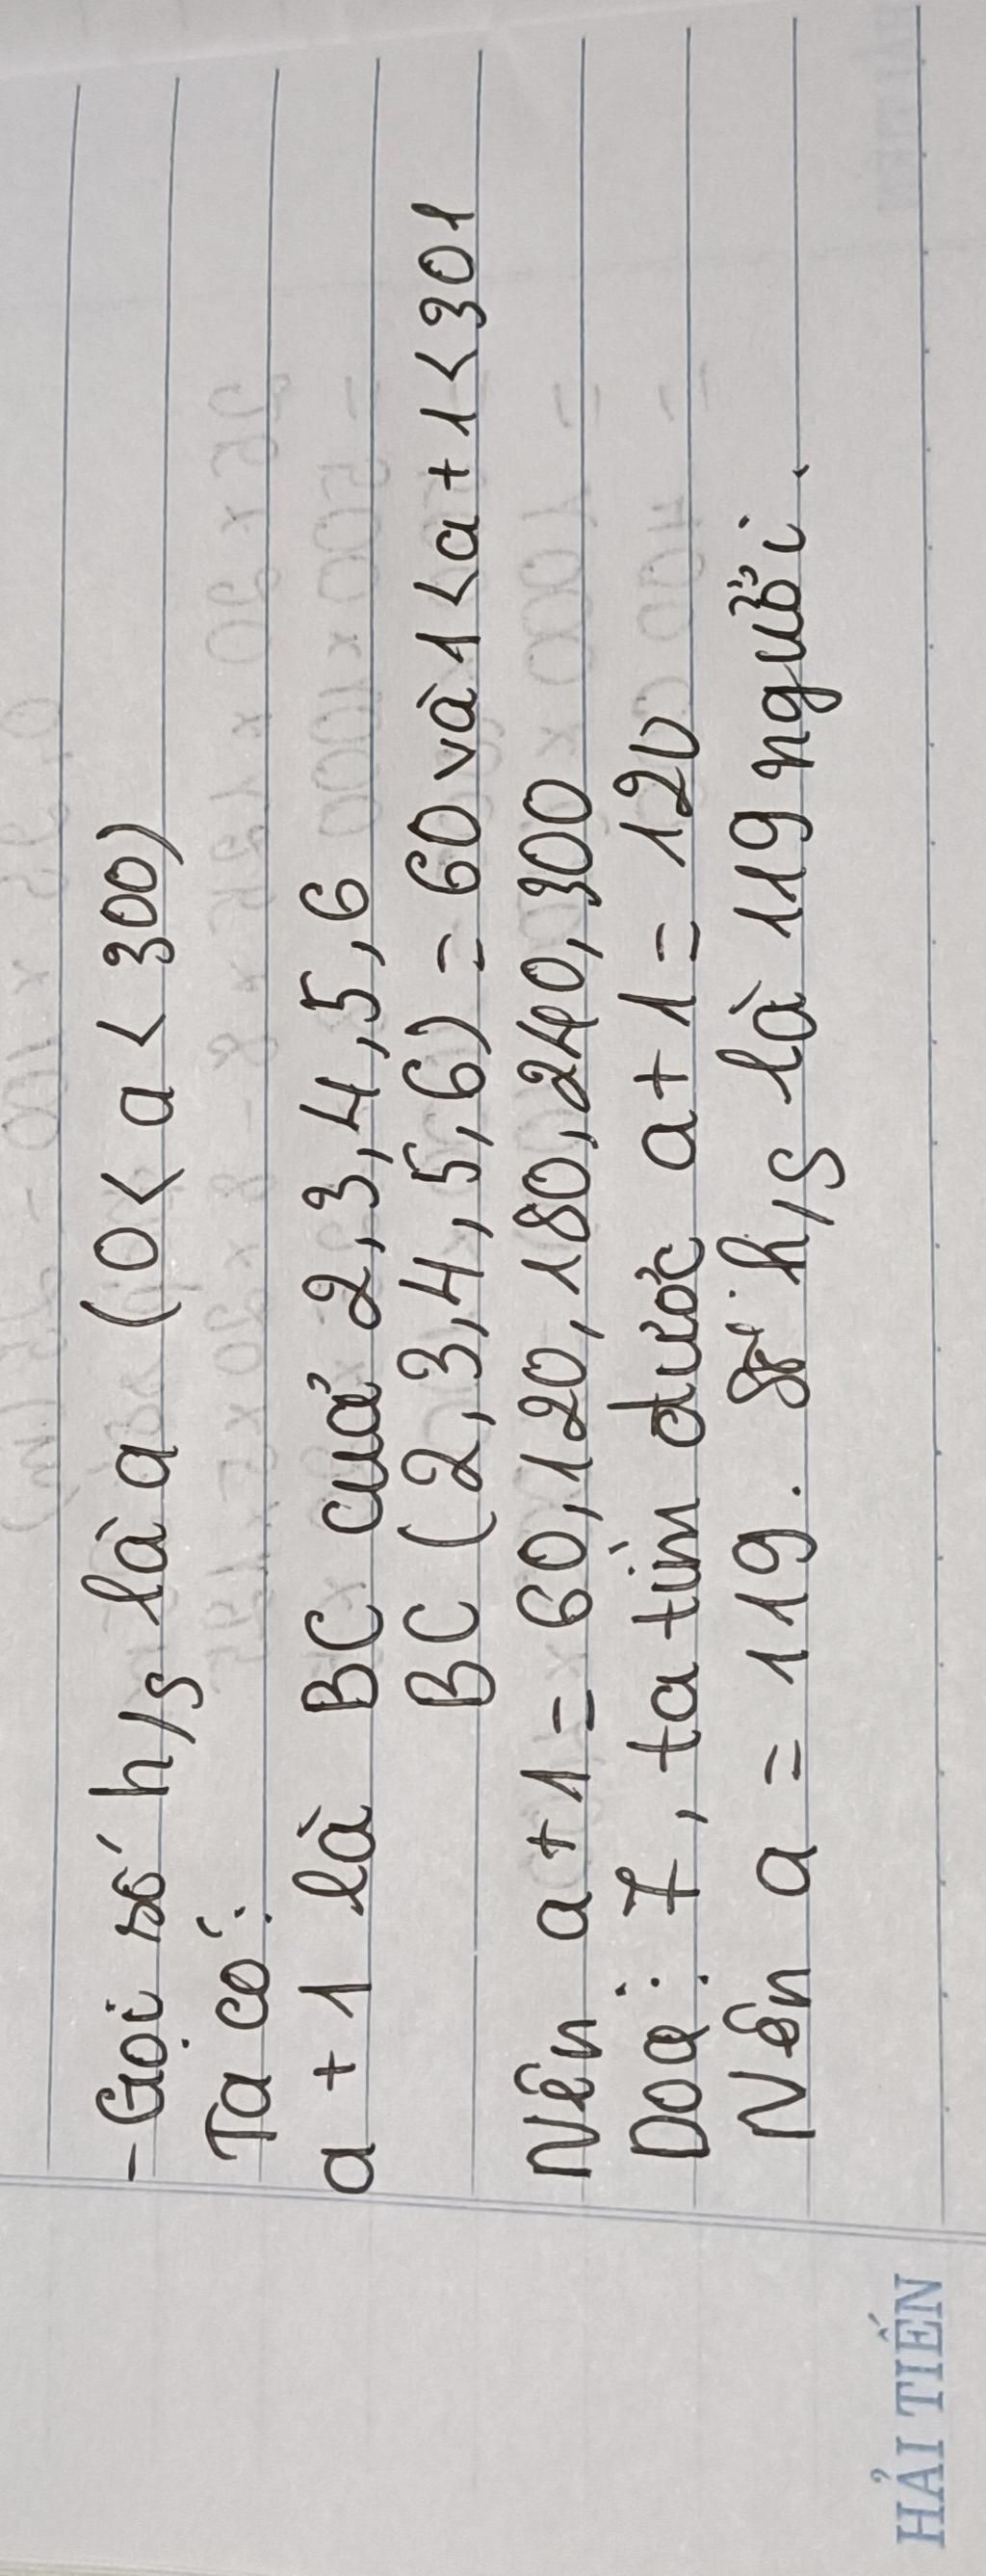 - Gọi số h/s là a (0 < a < 300)
Ta có:
a + 1 là BC cuả 2,3,4,5,6
BC (2,3,4,5,6) = 60 và 1 < a + 1 < 301
Nên a + 1 = 60,120,180,240,300
Do a ⋮ 7, ta tìm được a + 1 = 120
Nên a = 119. Số h/s là 119 người.
HẢI TIẾN